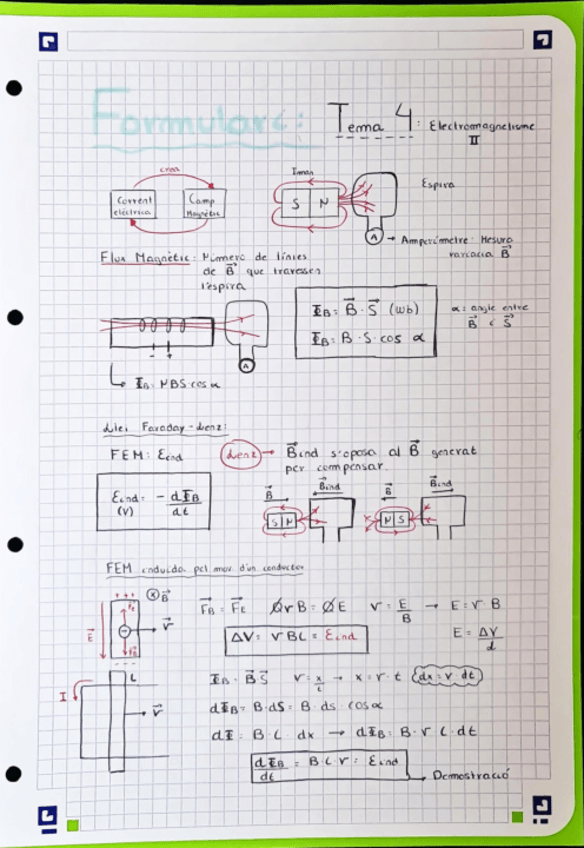 Formulari:
Tema 4: Electromagnetisme II
crea
Corrent elèctrica
Camp Magnètic
Iman
S N
Espira
A → Amperímetre: Mesura variació B⃗
Flux Magnètic: Número de línies
de B⃗ que travessen
l'espira
ΦB = B⃗ · S⃗ (wb)
ΦB = B · S · cos α
α: angle entre
B⃗ i S⃗
A
ΦB = NBS·cos α
Llei Faraday-Lenz:
FEM: Eind
Lenz → B⃗ind s'oposa al B⃗ generat
per compensar.
Eind = - dΦB/dt
(V)
B⃗ B⃗ind B⃗ B⃗ind
S N
N S
FEM induïda pel mov. d'un conductor
+++ ⊗B⃗
E⃗ v⃗
F⃗B = F⃗E QvB = QE v = E/B → E = v·B
ΔV = vBL = Eind
E = ΔV/d
L
I
v⃗
ΦB = B⃗ S⃗ v = x/t → x = v·t (dx = v·dt)
dΦB = B·dS = B·ds·cos α
dΦ = B·L·dx → dΦB = B·v·L·dt
dΦB/dt = B·L·v = Eind
→ Demostració